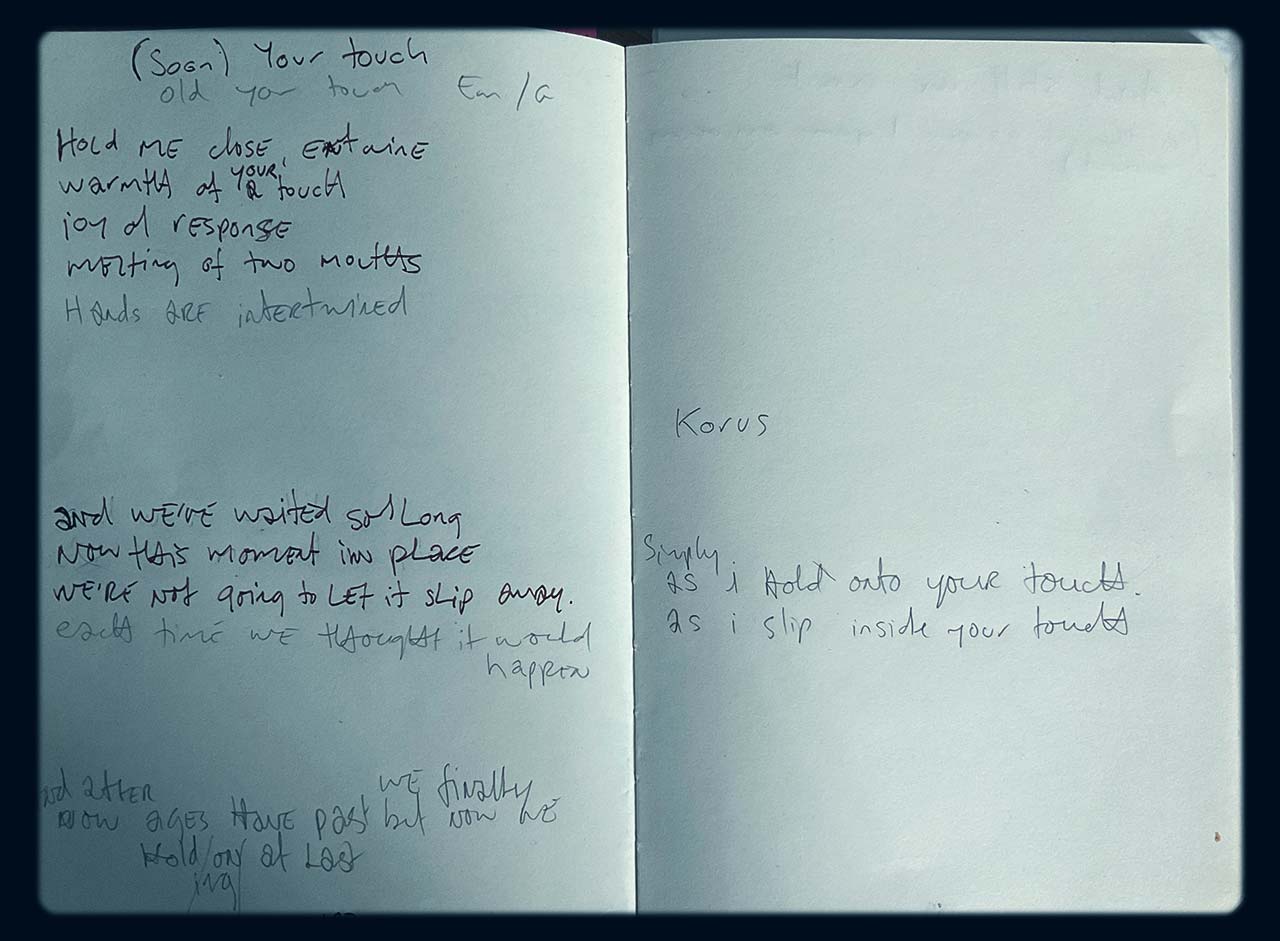 (Soon) Your touch
old your touch Em/G
Hold ME close, Entwine
warmth of YOUR touch
joy of response
melting of two mouths
Hands are intertwined
and WE'VE waited so Long
NOW this moment in place
WE'RE Not going to LET it slip away.
each time we thought it would
happen
nd after we finally
NOW AGES HAVE past but NOW WE
Hold/on/ at Last
ing
Korus
Simply
as i Hold onto your touch.
as i slip inside your touch